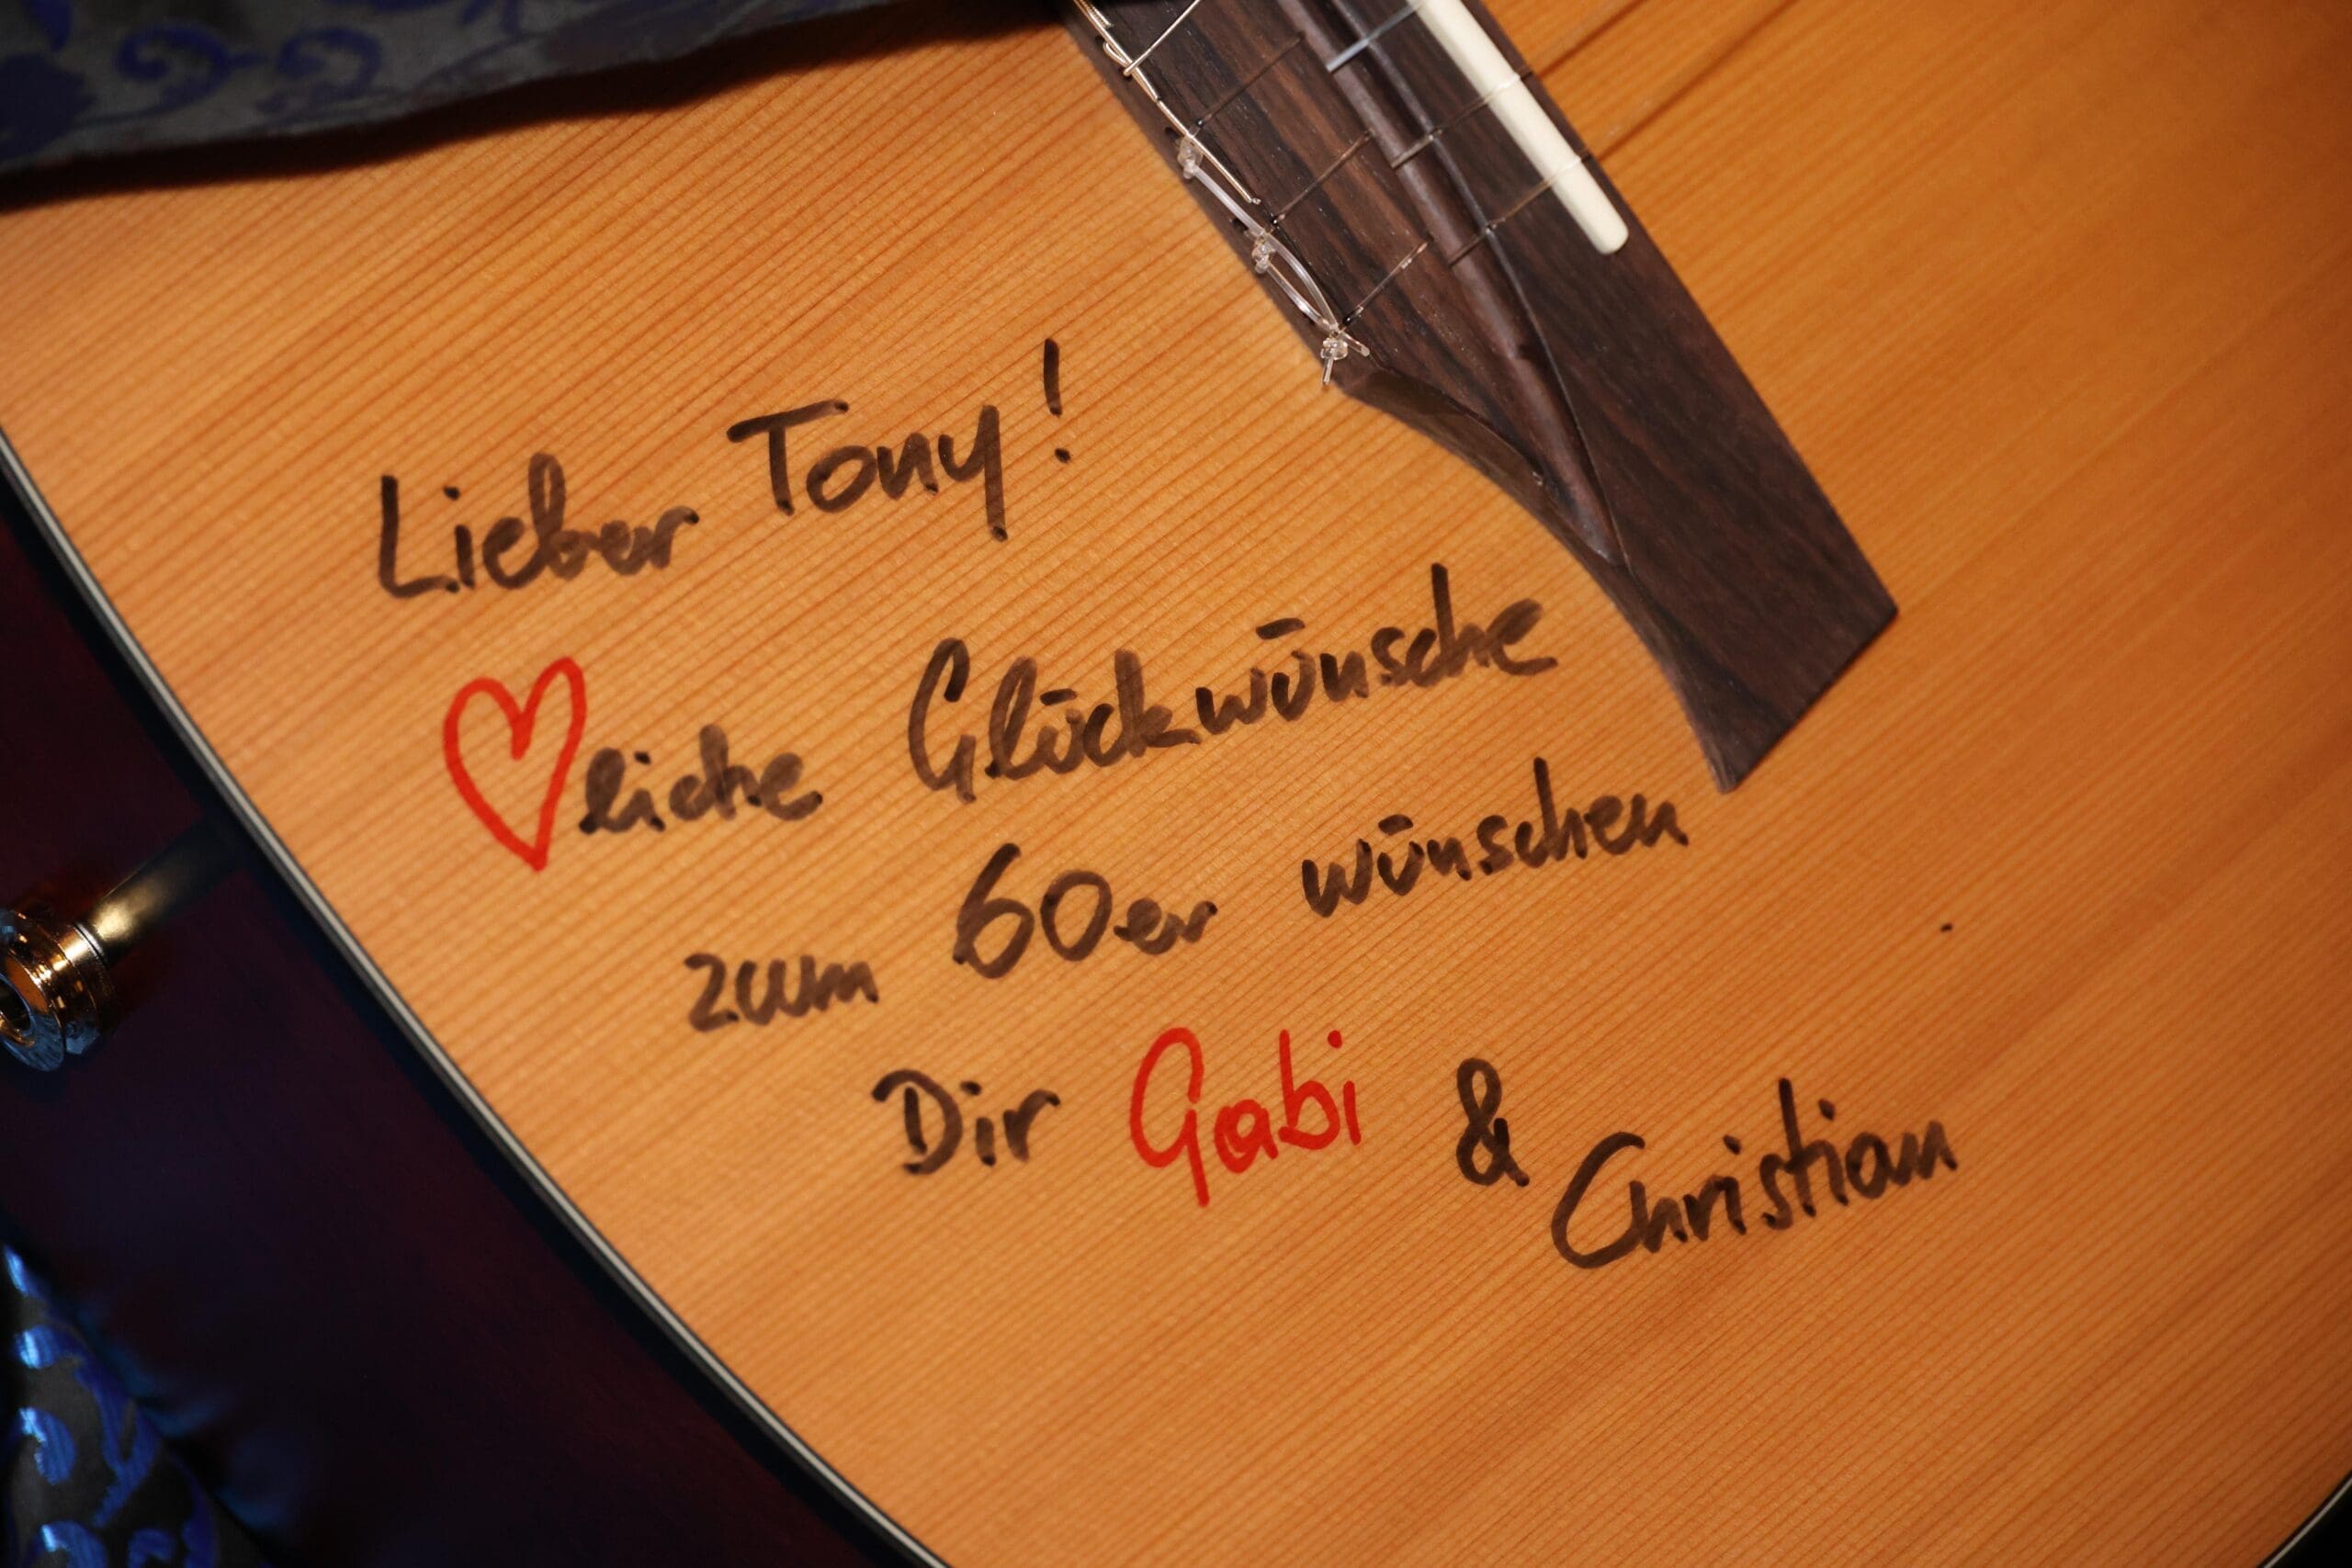 Lieber Tony!
♡liche Glückwünsche
zum 60er wünschen
Dir Gabi & Christian